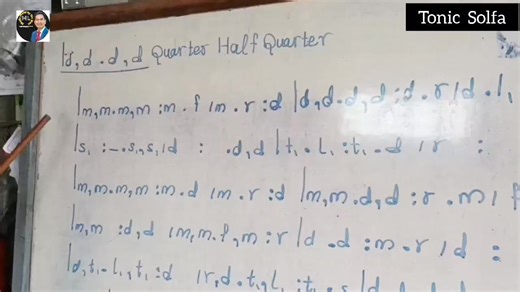 Tonic Solfa
|d,d.d,d Quarter Half Quarter
|m,m.m,m :m.f |m.r :d |d,d.d,d :d.r |d.l₁
|s₁ :-.s₁,s₁ |d : .d,d |t₁.l₁ :t₁.d |r :
|m,m.m,m :m.d |m.r :d |m,m.d,d :r.m | f
|m,m :d,d |m,m.f,m :r |d.d :m.r |d :
|d,t₁.l₁,t₁ :d |r,d.t₁,l₁ :t₁.s